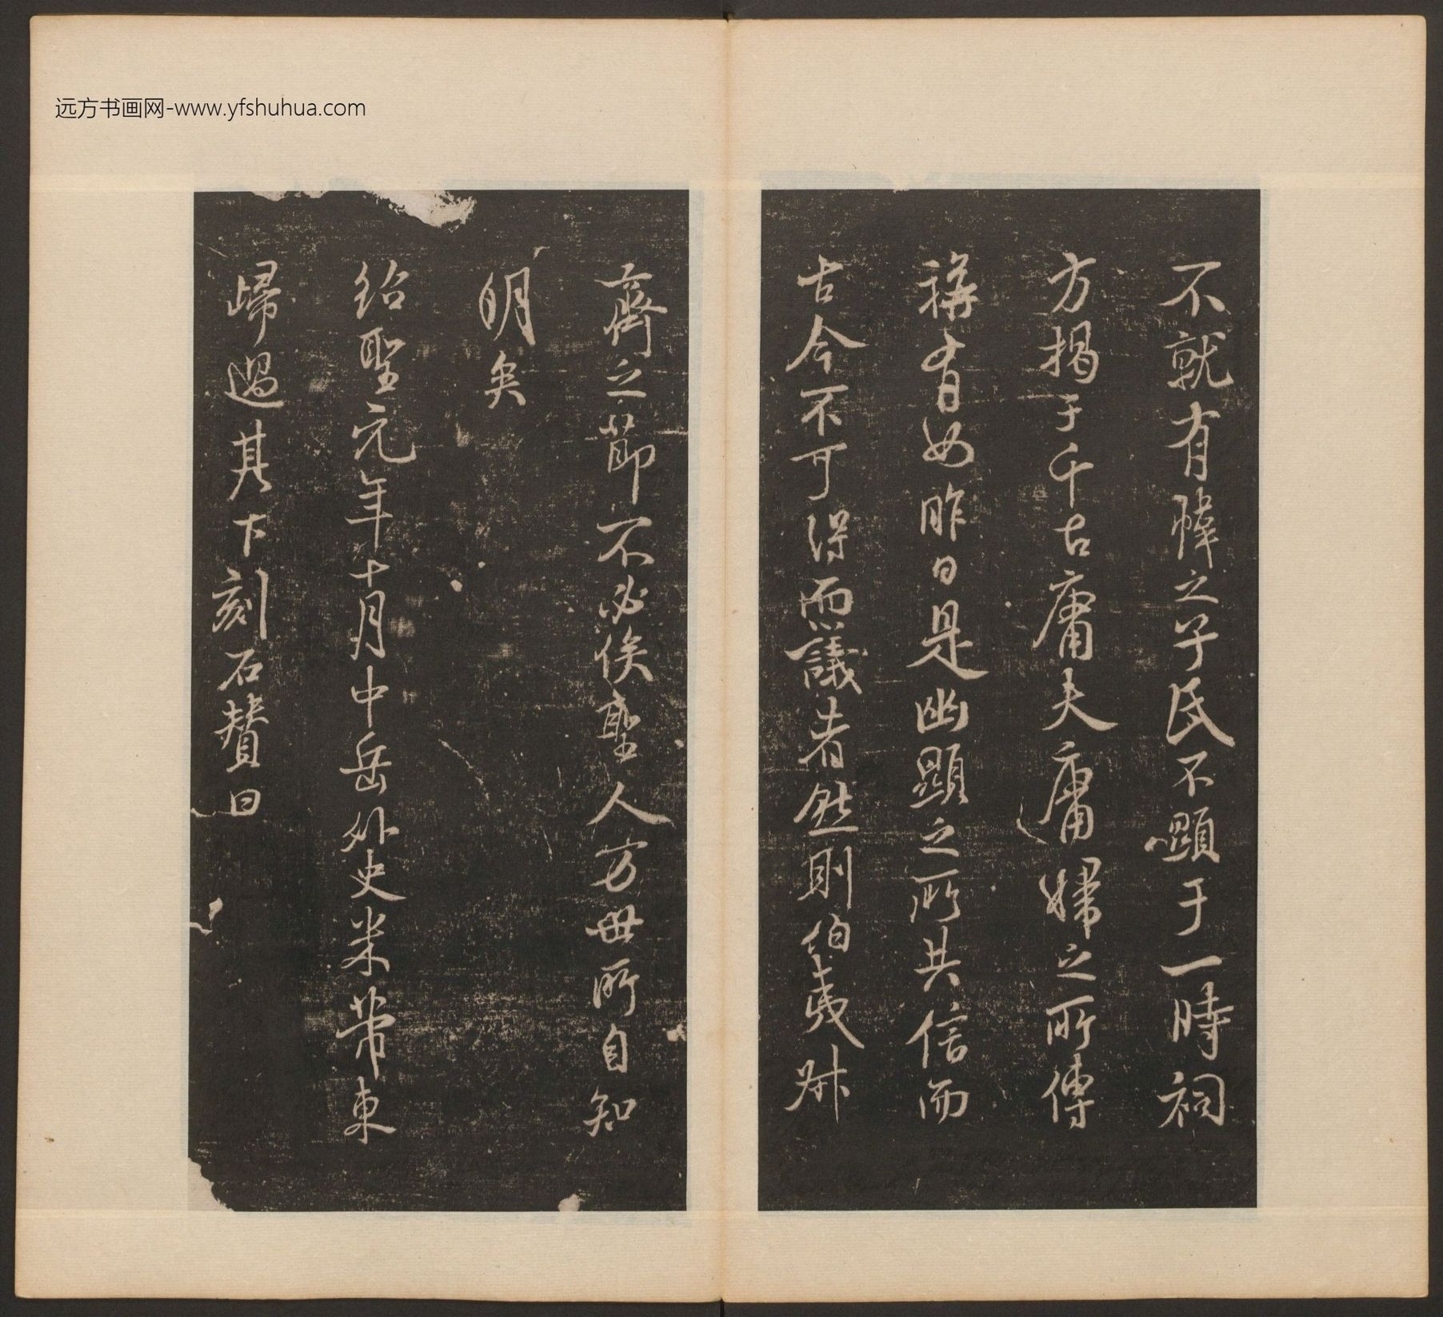 远方书画网-www.yfshuhua.com
不就有幃之子氏不顯于一時祠
方揭于千古庸夫庸婦之所傳
稱有如昨日是幽顯之所共信而
古今不可得而議者然則伯夷叔
齊之節不必俟聖人万世所自知
明矣
紹聖元年十月中岳外史米芾東
歸過其下刻石贊曰